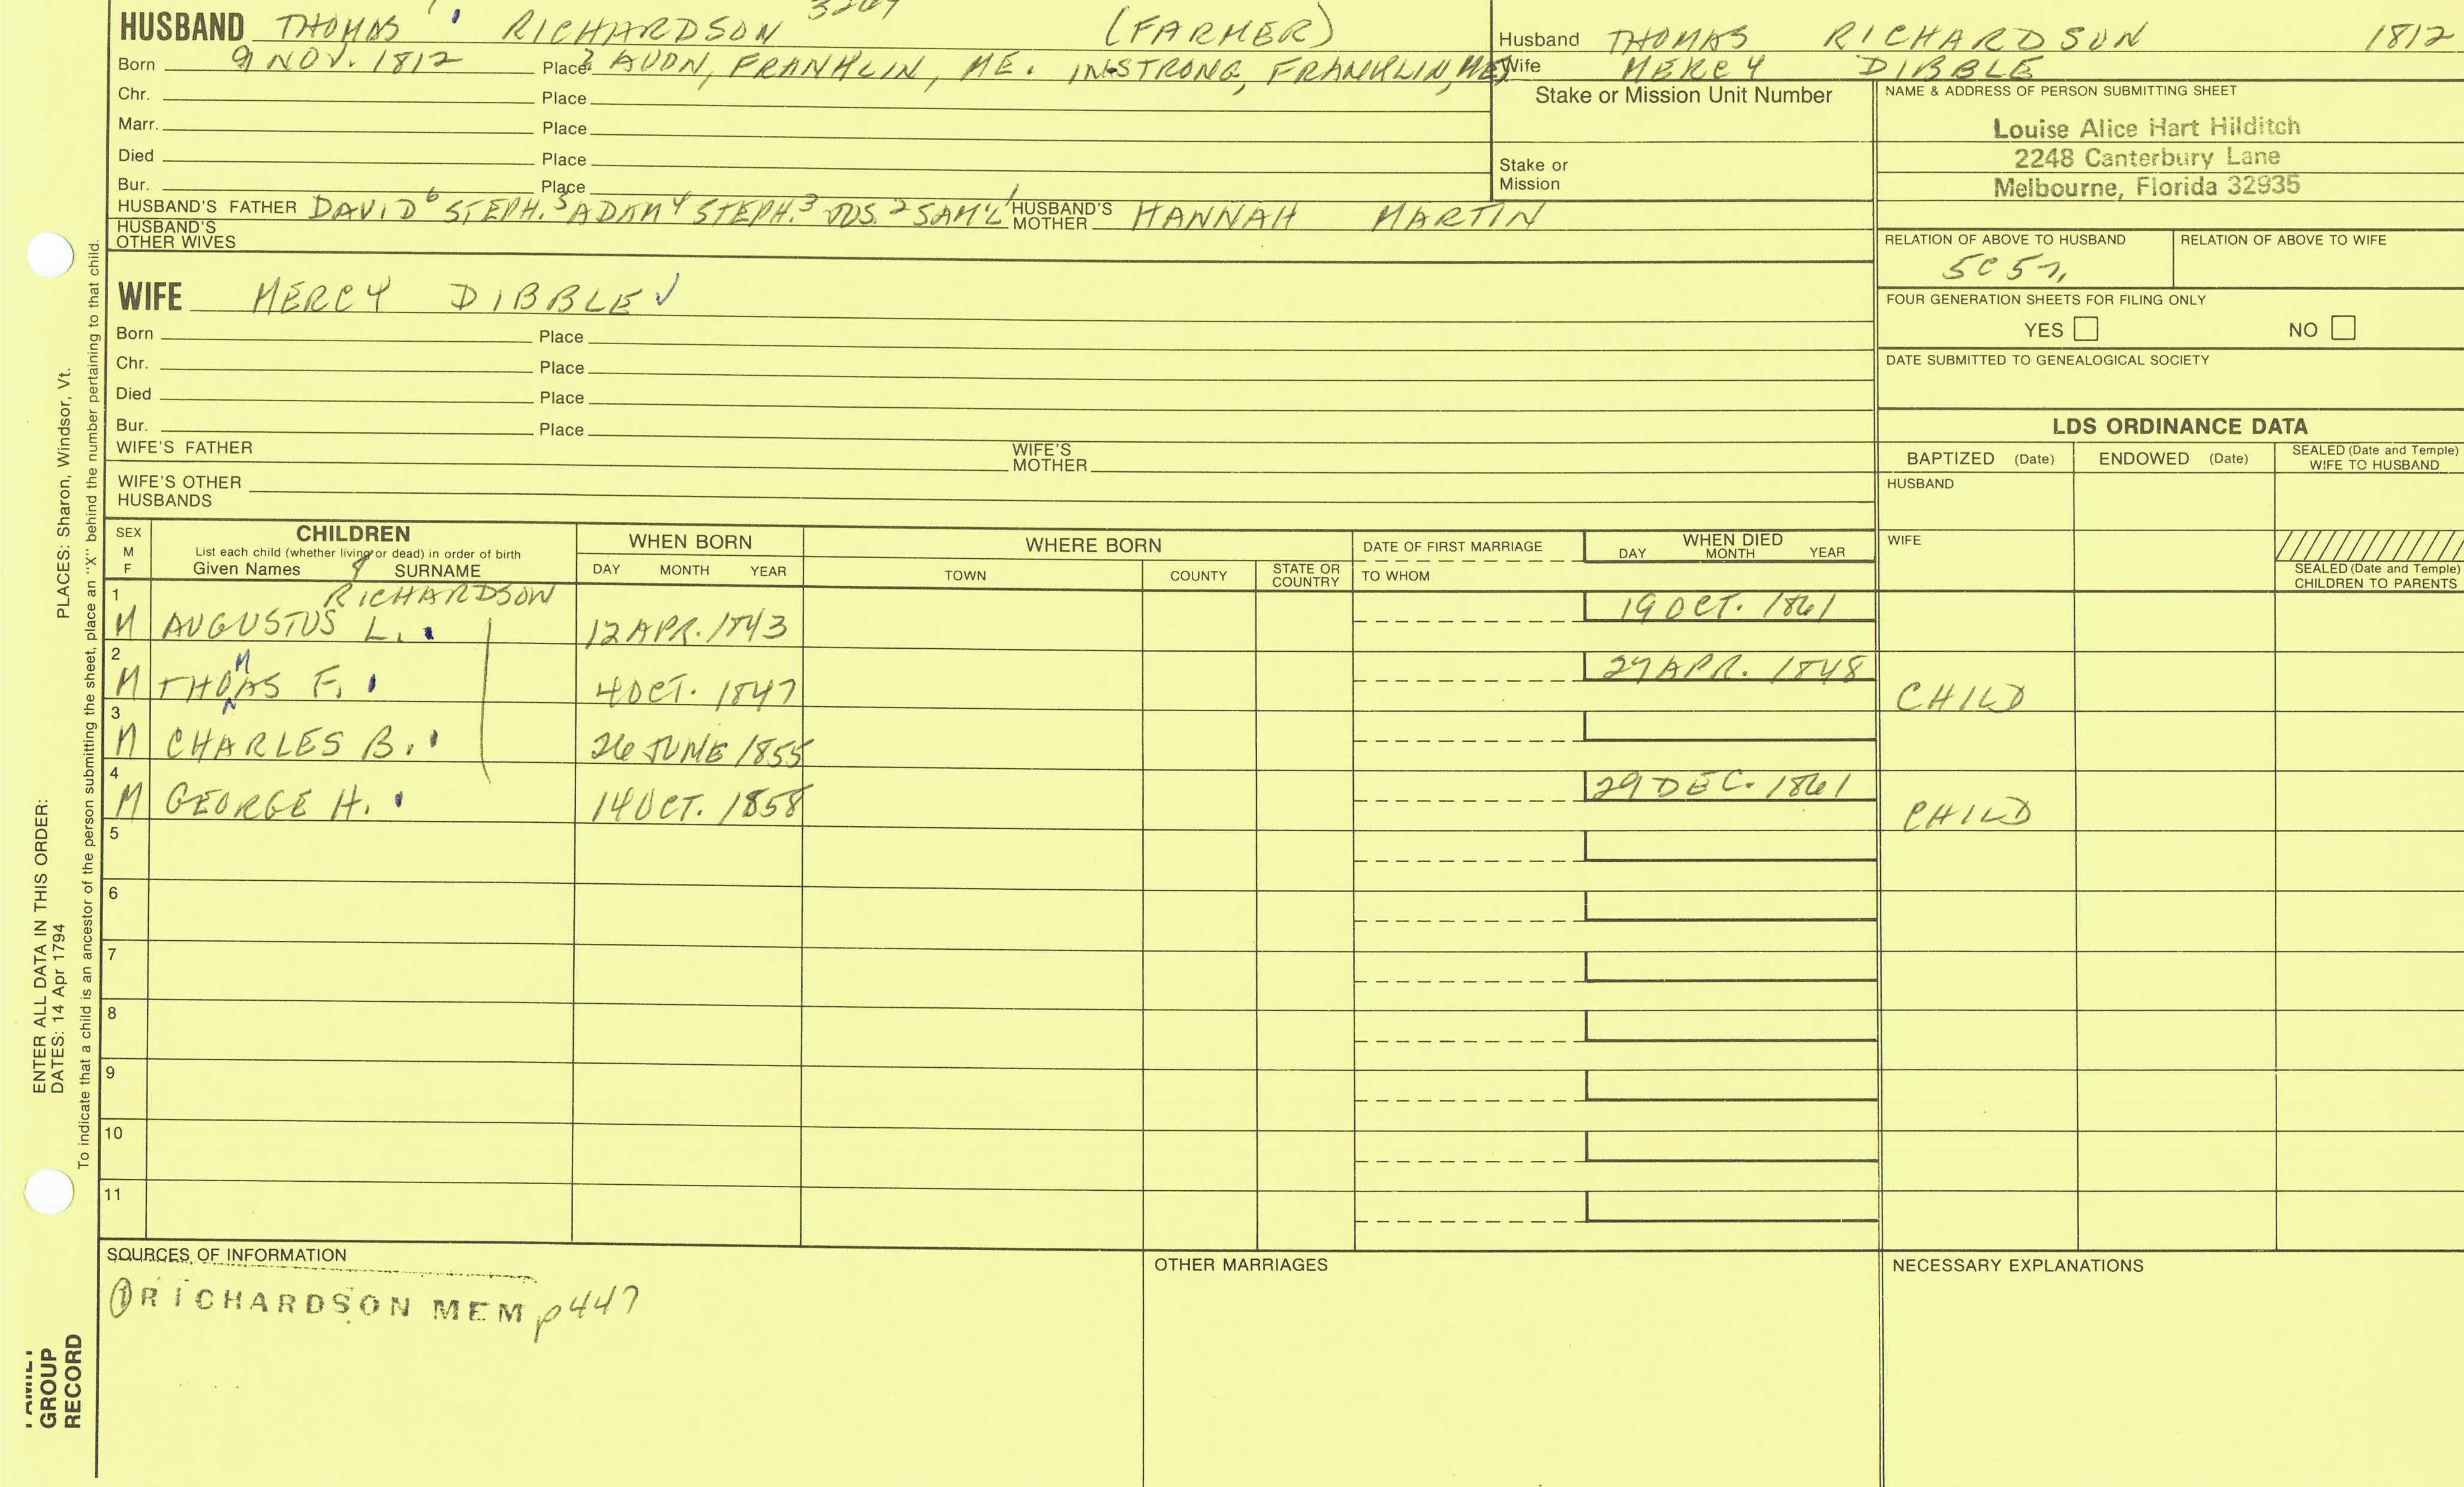 HUSBAND THOMAS RICHARDSON (FARMER)
Born 9 NOV. 1812 Place ? AVON, FRANKLIN, ME. IN STRONG, FRANKLIN, ME
Chr. Place
Marr. Place
Died Place
Bur. Place
HUSBAND'S FATHER DAVID⁶ STEPH.⁵ ADAM⁴ STEPH.³ JOS.² SAM'L¹ HUSBAND'S MOTHER HANNAH MARTIN
HUSBAND'S OTHER WIVES
Husband THOMAS RICHARDSON 1812
Wife MERCY DIBBLE
Stake or Mission Unit Number
Stake or Mission
NAME & ADDRESS OF PERSON SUBMITTING SHEET
Louise Alice Hart Hilditch
2248 Canterbury Lane
Melbourne, Florida 32935
RELATION OF ABOVE TO HUSBAND RELATION OF ABOVE TO WIFE
5C5
FOUR GENERATION SHEETS FOR FILING ONLY
YES NO
DATE SUBMITTED TO GENEALOGICAL SOCIETY
WIFE MERCY DIBBLE ✓
Born Place
Chr. Place
Died Place
Bur. Place
WIFE'S FATHER WIFE'S MOTHER
WIFE'S OTHER HUSBANDS
LDS ORDINANCE DATA
BAPTIZED (Date) ENDOWED (Date) SEALED (Date and Temple) WIFE TO HUSBAND
HUSBAND
WIFE
SEALED (Date and Temple) CHILDREN TO PARENTS
SEX M F
CHILDREN
List each child (whether living or dead) in order of birth
Given Names SURNAME
WHEN BORN
DAY MONTH YEAR
WHERE BORN
TOWN COUNTY STATE OR COUNTRY
DATE OF FIRST MARRIAGE
TO WHOM
WHEN DIED
DAY MONTH YEAR
8
RICHARDSON
1 M AUGUSTUS L. 12 APR. 1843 19 OCT. 1861
2 M THOMAS F. 4 OCT. 1847 27 APR. 1848 CHILD
3 M CHARLES B. 26 JUNE 1855
4 M GEORGE H. 14 OCT. 1858 29 DEC. 1861 CHILD
5
6
7
8
9
10
11
SOURCES OF INFORMATION
① RICHARDSON MEM p447
OTHER MARRIAGES
NECESSARY EXPLANATIONS
ENTER ALL DATA IN THIS ORDER:
DATES: 14 Apr 1794
PLACES: Sharon, Windsor, Vt.
To indicate that a child is an ancestor of the person submitting the sheet, place an "X" behind the number pertaining to that child.
FAMILY
GROUP
RECORD